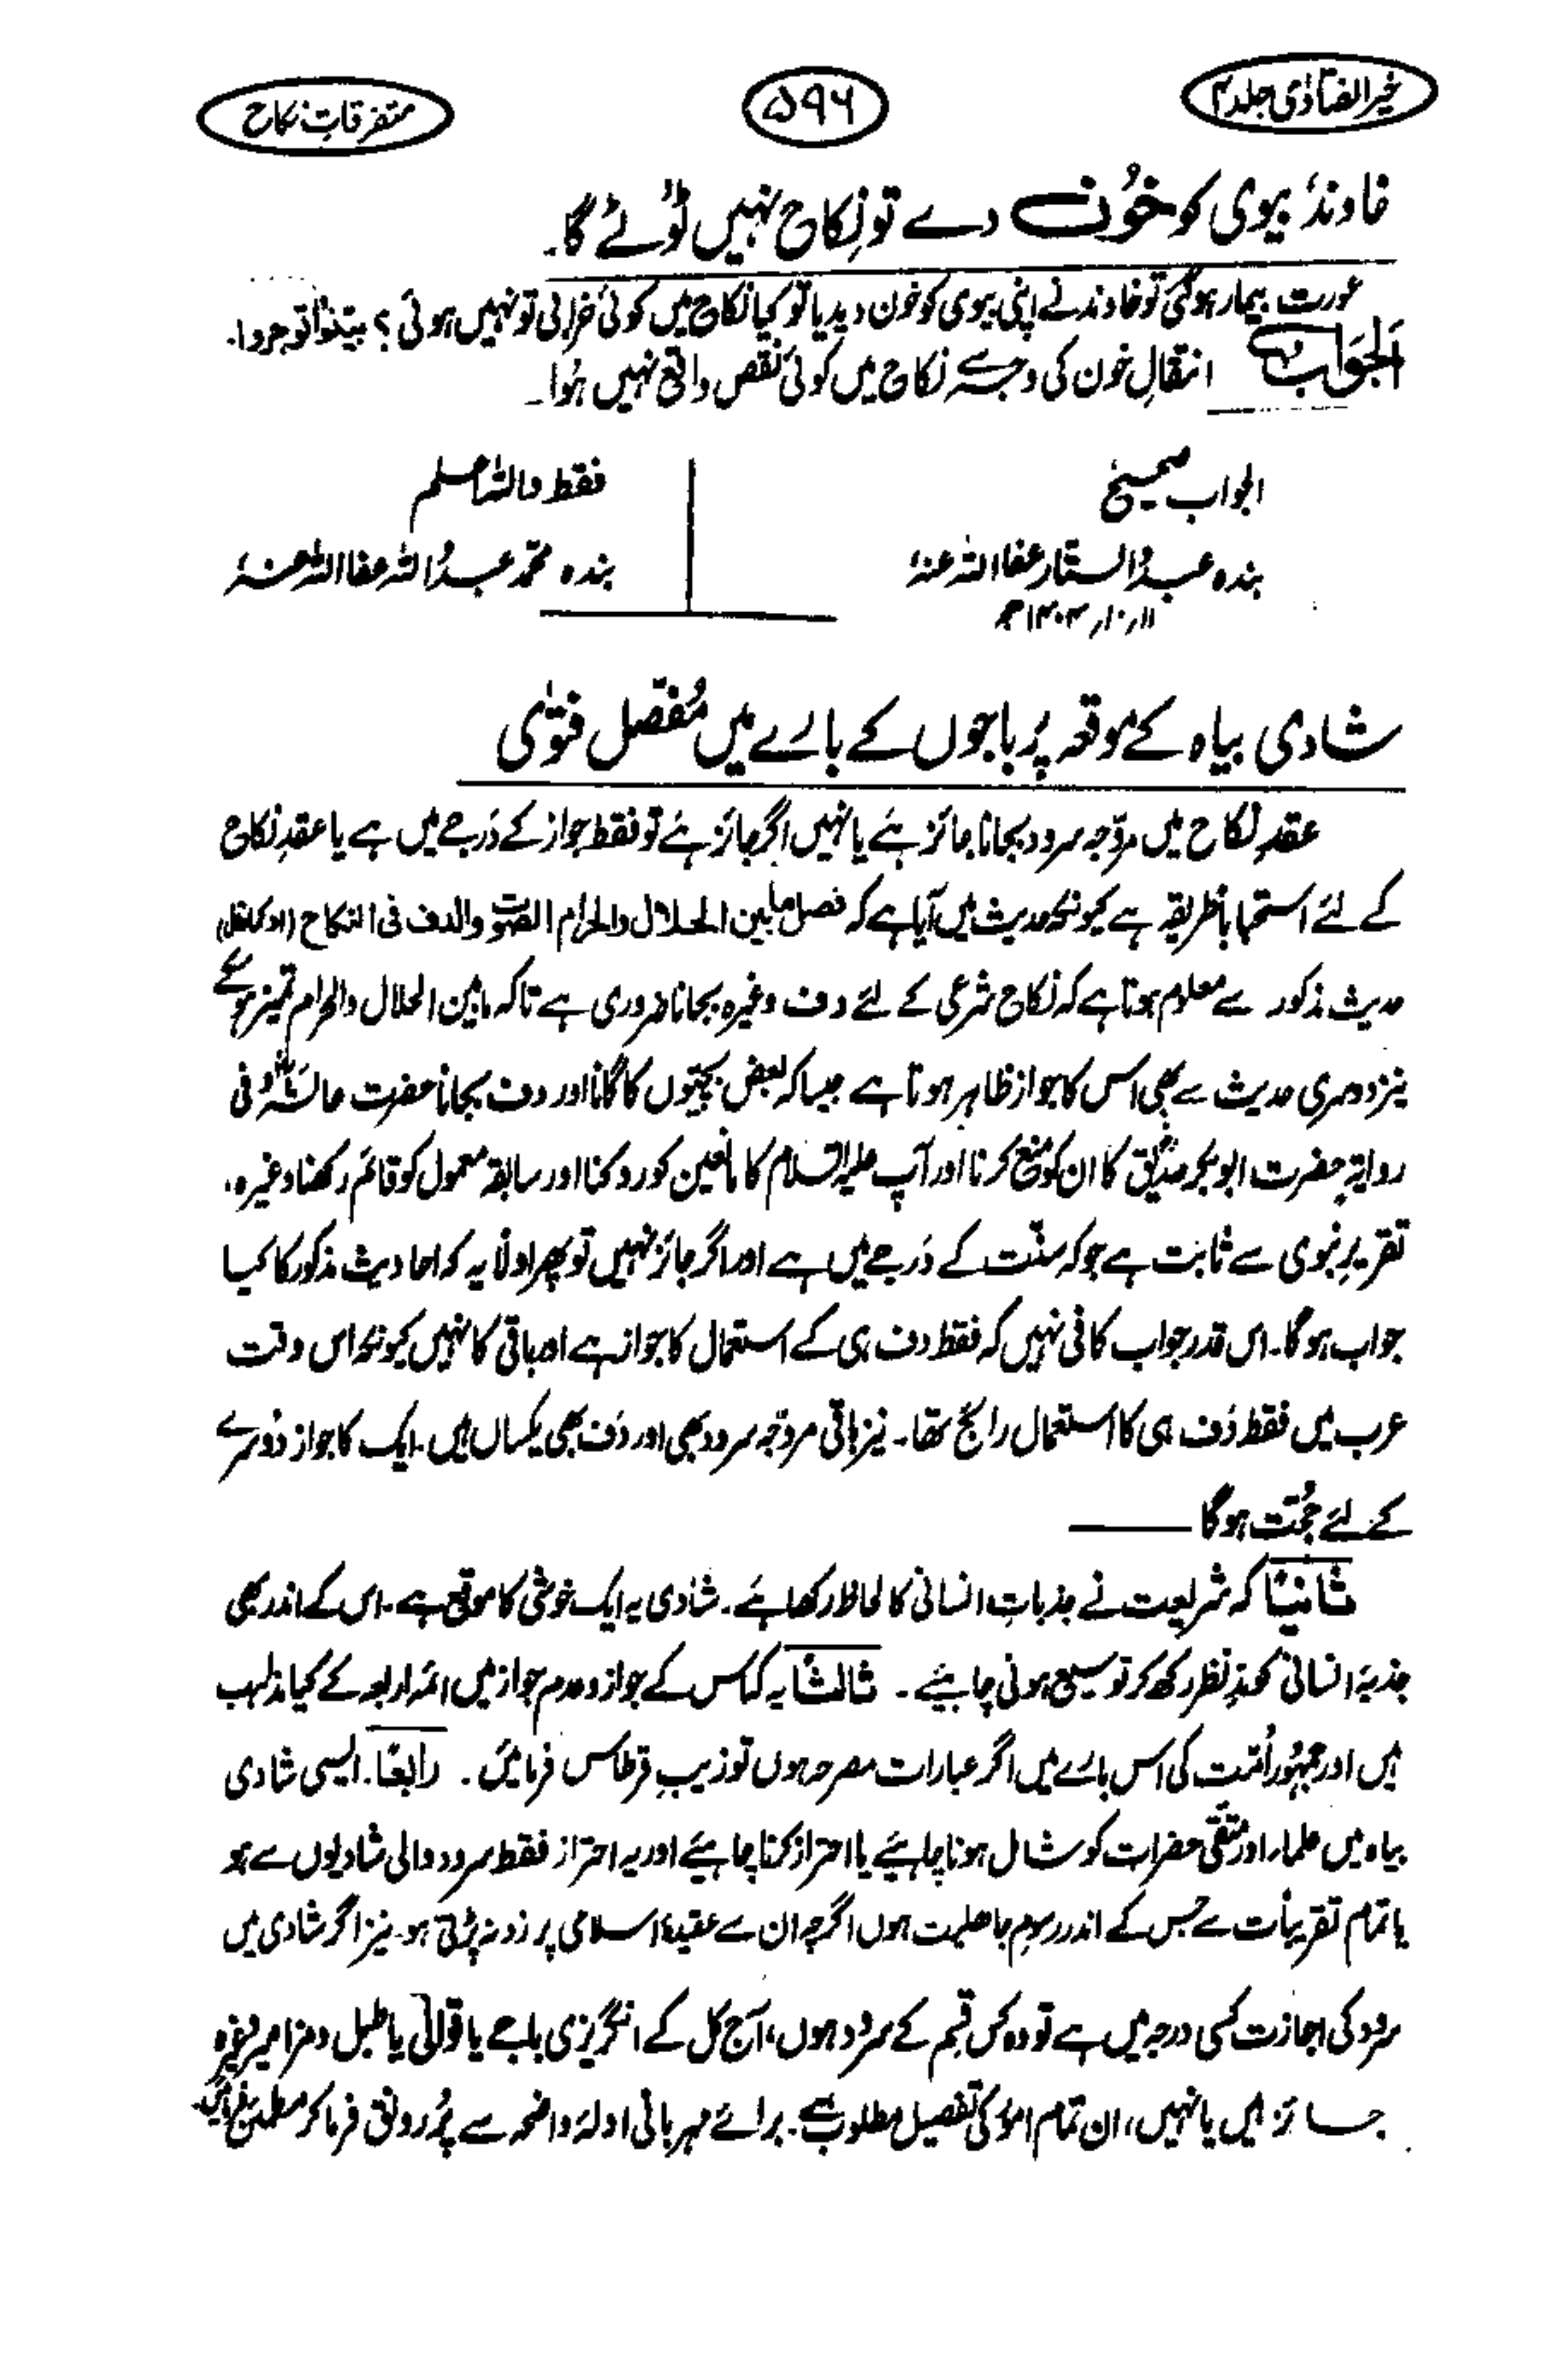 خیر الفتاوٰی جلد ۴
۵۹۶
متفرقات نکاح
خاوند، بیوی کو خُون دے تو نِکاح نہیں ٹوٹے گا۔
عورت بیمار ہوگئی تو خاوند نے اپنی بیوی کو خون دیدیا تو کیا نکاح میں کوئی خرابی تو نہیں ہوئی؟ بیّنوا توجروا۔
اَلجَوَاب انتقالِ خون کی وجہ سے نکاح میں کوئی نقص واقع نہیں ہُوا۔
الجواب صحیح
بندہ عبدُ الستار عفا اللہ عنہٗ
۱۱/۱۰/۱۴۰۳ھ
فقط واللہ اعلم
بندہ محمّد عبدُ اللہ عفا اللہ عنہٗ
شادی بیاہ کے موقعہ پر باجوں کے بارے میں مُفَصّل فتوٰی
عقدِ نکاح میں مروّجہ سرود بجانا جائز ہے یا نہیں اگر جائز ہے تو فقط جواز کے دَرجے میں ہے یا عقدِ نکاح
کے لئے استحباباً طریقہ ہے کیونکہ حدیث میں آیا ہے کہ فصل مابین الحلال والحرام الصّوت والدف فی النکاح (او کما قال)
حدیث مذکور سے معلوم ہوتا ہے کہ نکاح شرعی کے لئے دف وغیرہ بجانا ضروری ہے تاکہ مابین الحلال والحرام تمیز ہو سکے
نیز دوسری حدیث سے بھی اس کا جواز ظاہر ہوتا ہے جیسا کہ بعض بچیّوں کا گانا اور دف بجانا حضرت عائشہؓ فی
روایۃٍ حضرت ابوبکر صدیقؓ کا ان کو منع کرنا اور آپ علیہ السّلام کا مانعین کو روکنا اور سابقہ معمول کو قائم رکھنا وغیرہ،
تقریرِ نبوی سے ثابت ہے جو کہ سنّت کے دَرجے میں ہے اور اگر جائز نہیں تو پھر اولاً یہ کہ احادیث مذکور کا کیا
جواب ہو گا۔ اس قدر جواب کافی نہیں کہ فقط دف ہی کے استعمال کا جواز ہے اور باقی کا نہیں کیونکہ اس وقت
عرب میں فقط دَف ہی کا استعمال رائج تھا۔ نیز باقی مروّجہ سرود بھی اور دَف بھی یکساں ہیں۔ ایک کا جواز دُوسرے
کے لئے حُجّت ہو گا
ثانیًا کہ شریعت نے جذباتِ انسانی کا لحاظ رکھا ہے۔ شادی یہ ایک خوشی کا موقع ہے۔ اس کے اندر بھی
جذبۂ انسانی کو مدِّنظر رکھ کر توسیع ہونی چاہیئے۔ ثالثًا یہ کہ اس کے جواز و عدم جواز میں ائمہ اربعہ کے کیا مذاہب
ہیں اور جمہُور اُمّت کی اس بارے میں اگر عبارات مصرحہ ہوں تو زیبِ قرطاس فرمائیں۔ رابعًا۔ ایسی شادی
بیاہ میں علماء اور متّقی حضرات کو شامل ہونا چاہیئے یا احتراز کرنا چاہیئے اور یہ احتراز فقط سرود والی شادیوں سے ہو
یا تمام تقریبات سے جس کے اندر رسومِ جاہلیت ہوں اگرچہ ان سے عقیدۂ اسلامی پر زد نہ پڑتی ہو۔ نیز اگر شادی میں
سرود کی اجازت کسی درجہ میں ہے تو وہ کس قِسم کے سرود ہوں، آج کل کے انگریزی باجے یا قوالی یا طبل و مزامیر وغیرہ
جائز ہیں یا نہیں، ان تمام امور کی تفصیل مطلوب ہے۔ برائے مہربانی ادلۂ واضحہ سے پُر رونق فرما کر مطمئن فرمائیں۔